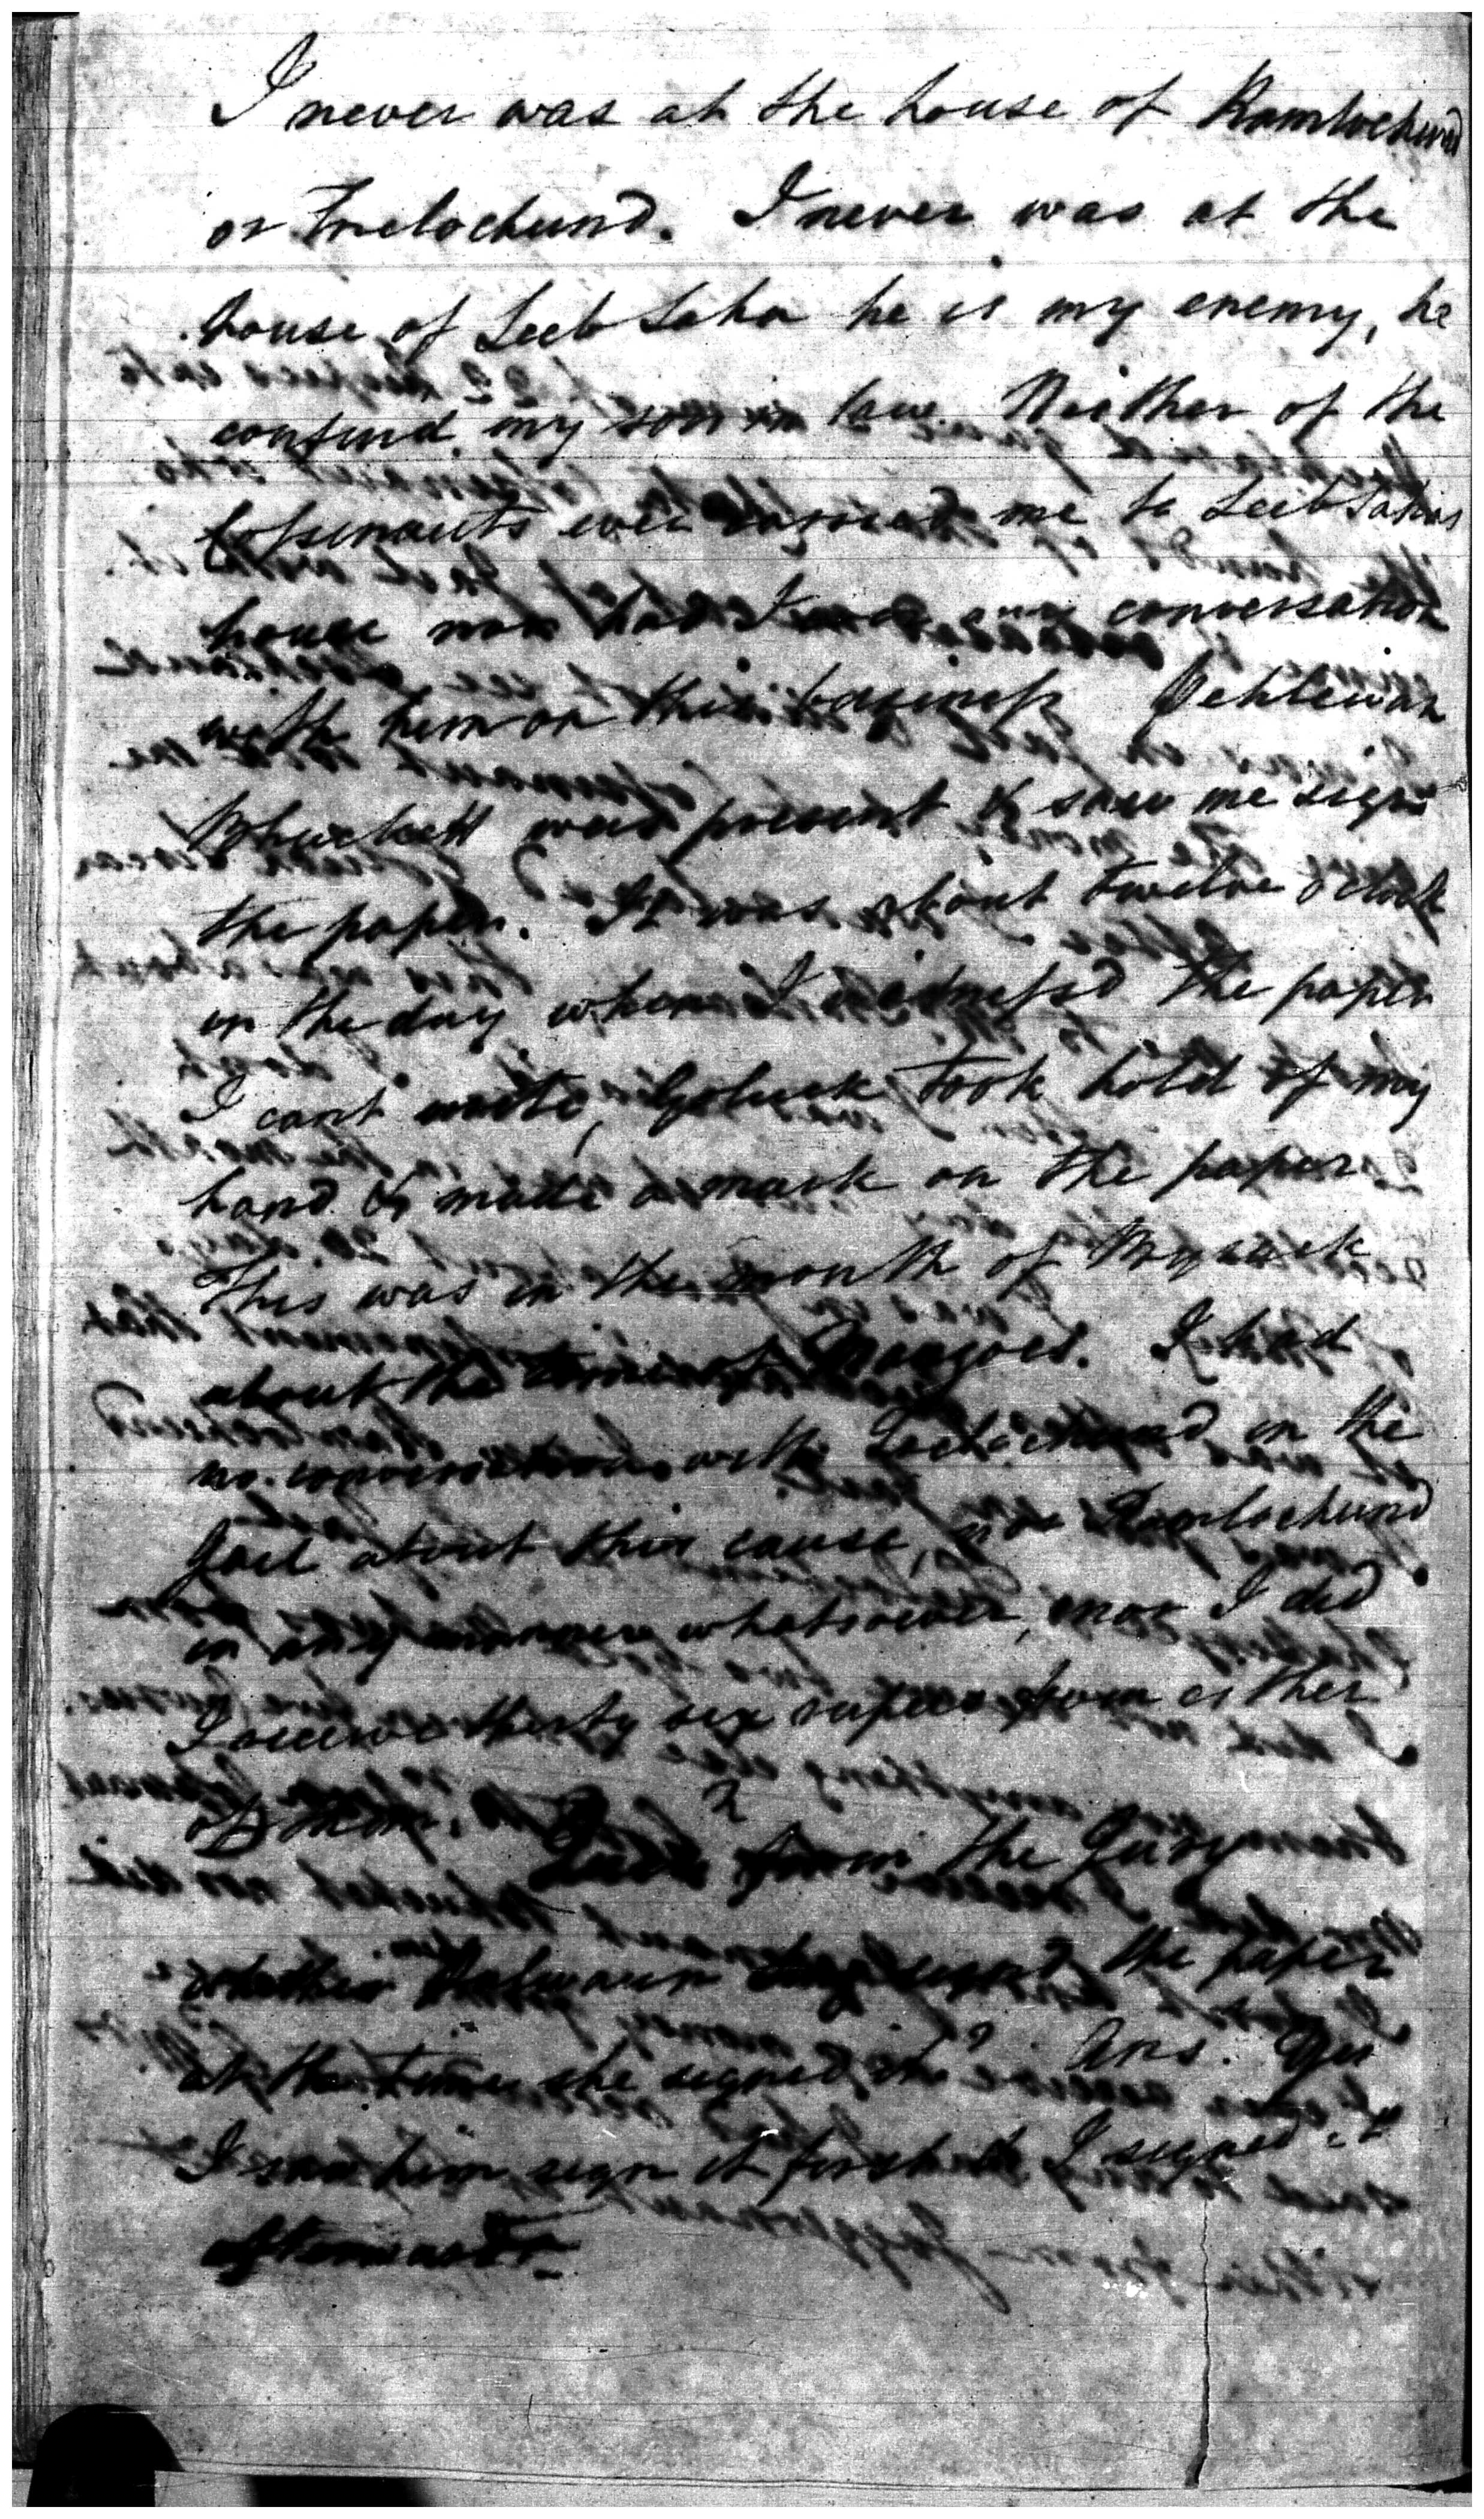 I never was at the house of Ramlochund
or Trelochund. I never was at the
house of Seeb Saha he is my enemy, he
confind my son in law. Neither of the
Cossinauts ever carried me to Seeb Sahas
house nor had I ever any conversation
with him on this business Pehlewan
was present & saw me sign
the paper. It was about twelve oClock
in the day when I witnessd the paper
I cant write, Goluck took hold of my
hand & made a mark on the paper
This was in the month of Bysack
about the time of Mangoes. I had
no conversation with in the
Jail about this cause, nor Ramlochund
in any manner whatsoever, nor I did
I receive thirty six rupees from either
of them. Qn from the Jury
whether the paper
at the time she signed it? Ans. Yes
I saw him sign it first I signed it
afterwards.